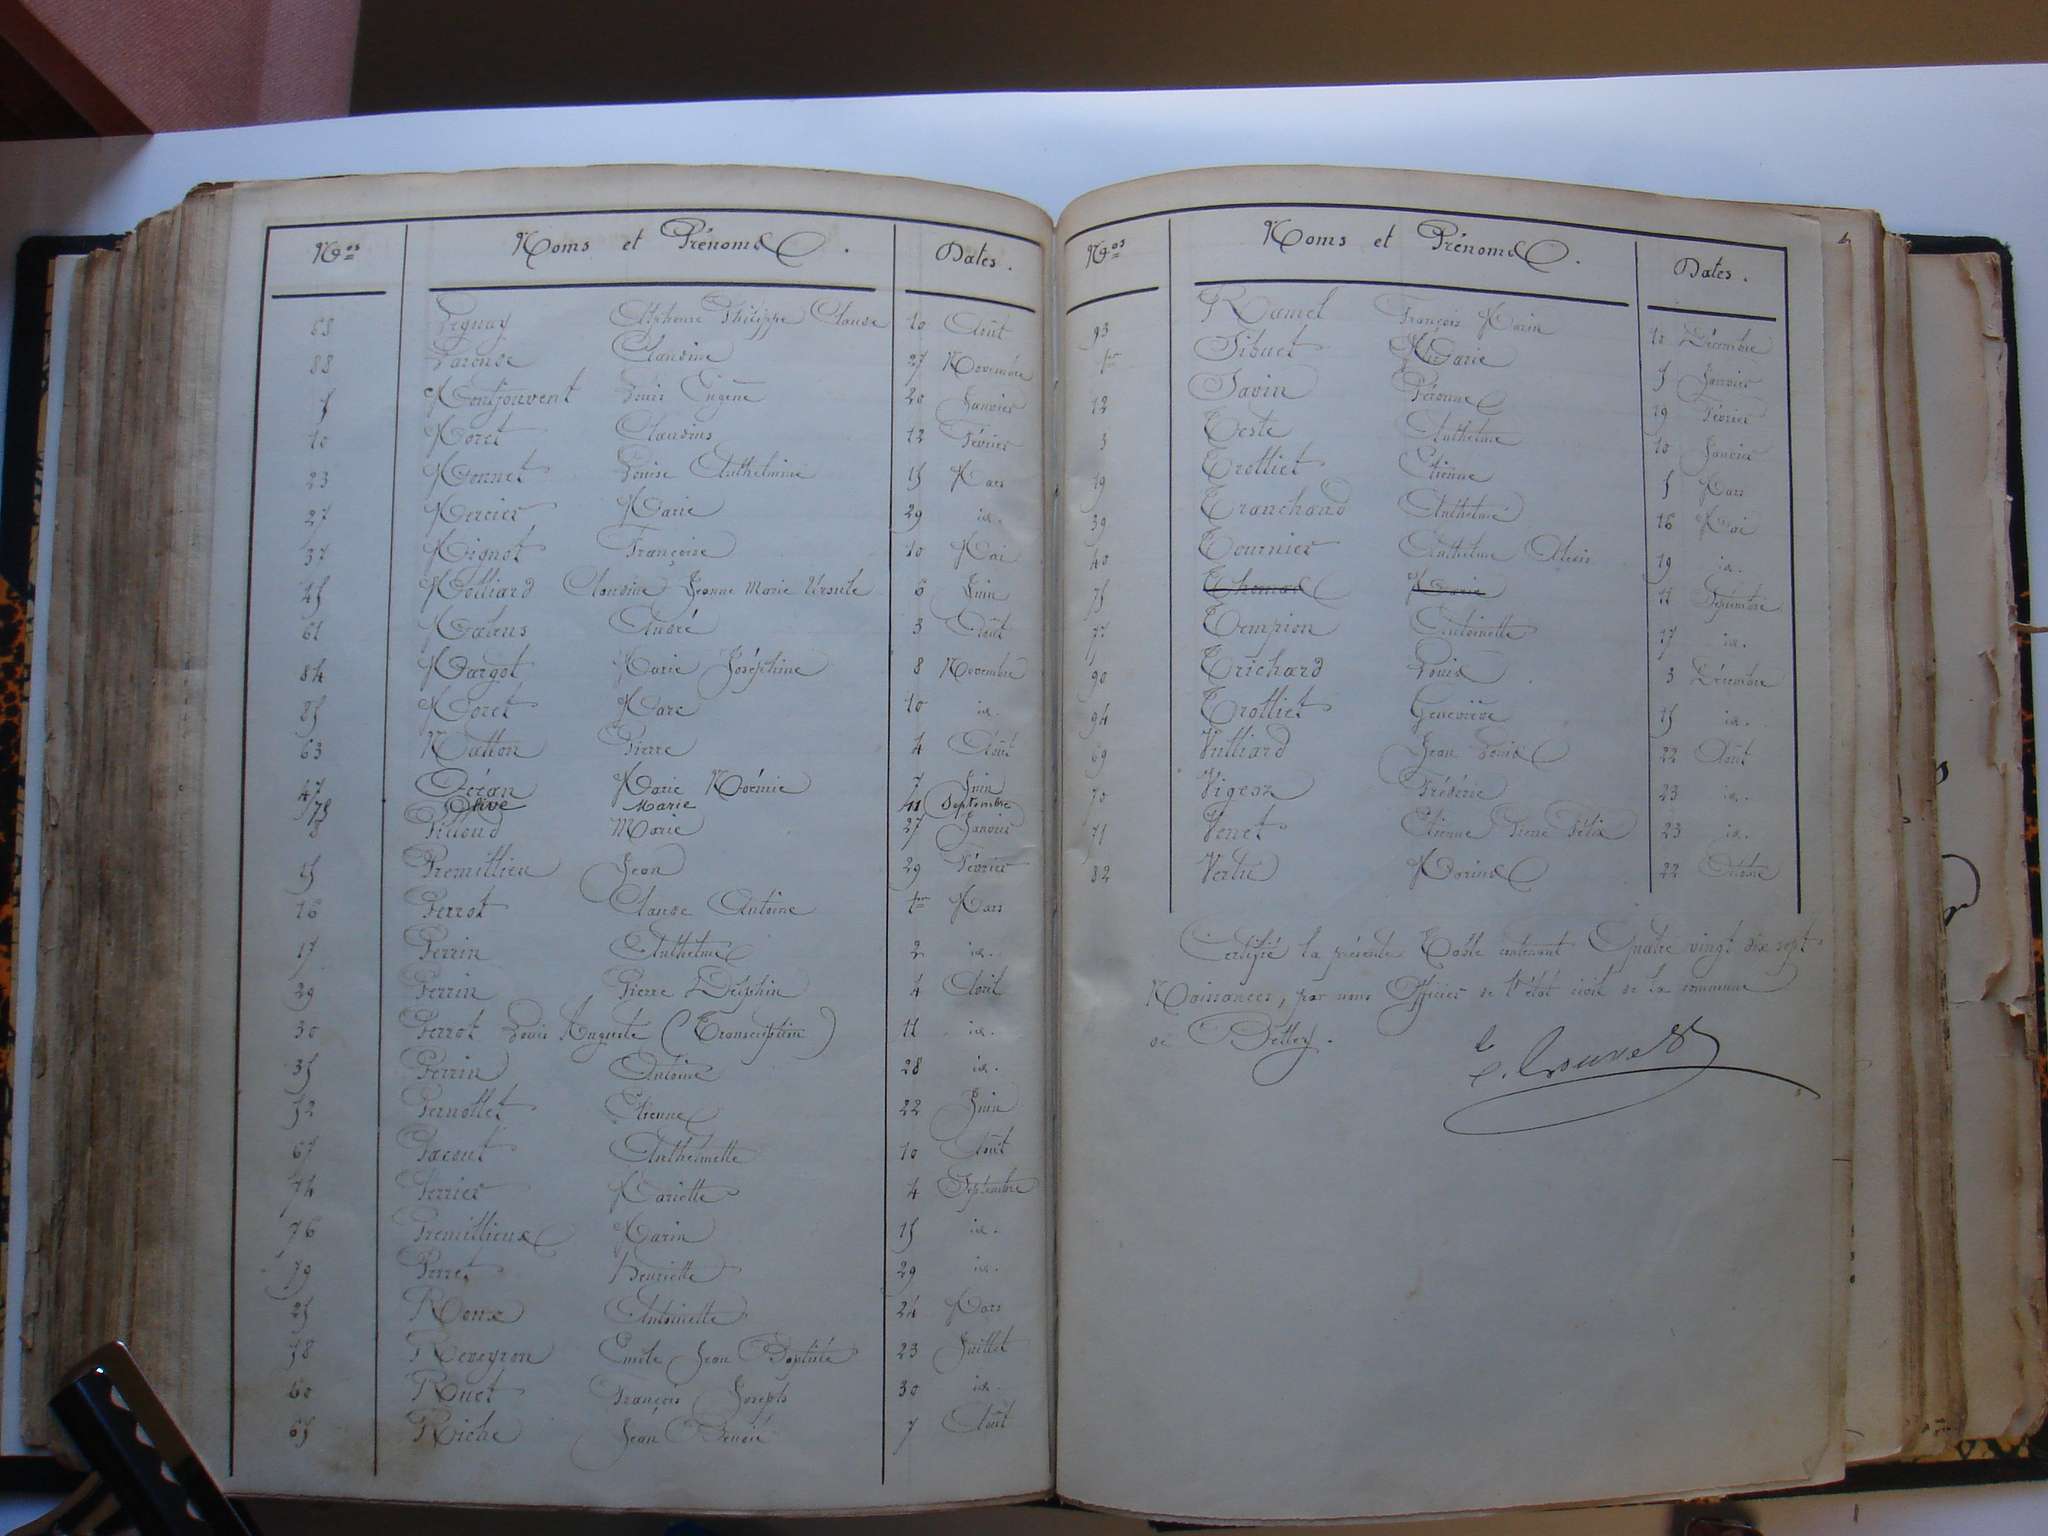 Nos Noms et Prénoms. Dates.
68 Alphonse Philippe Claude 10 Août
88 Laronde Claudine 27 Novembre
5 Montjouvent Louis Eugène 20 Janvier
10 Moret Claudius 12 Février
23 Monnet Louise Anthelmine 15 Mars
27 Mercier Marie 29 id.
37 Mignot Françoise 10 Mai
45 Molliard Claudine Jeanne Marie Ursule 6 Juin
61 André 3 Août
84 Margot Marie Joséphine 8 Novembre
85 Moret Marc 10 id.
63 Natton Pierre 4 Août
47 Marie Noémie 7 Juin
75 Olive Marie 11 Septembre
8 Pilloud Marie 27 Janvier
15 Premillieu Jean 29 Février
16 Perrot Claude Antoine 1er Mars
17 Perrin Anthelme 2 id.
29 Perrin Pierre Delphin 4 Avril
30 Perrot Louis Auguste (Transcription) 11 id.
35 Perrin Antoine 28 id.
52 Pernollet Etienne 22 Juin
67 Pacout Anthelmette 10 Août
74 Perrier Mariette 4 Septembre
76 Premillieux Marin 15 id.
79 Perret Henriette 29 id.
25 Roux Antoinette 24 Mars
58 Reveyron Emile Jean Baptiste 23 Juillet
60 Ruet François Joseph 30 id.
65 Riche Jean Benoit 7 Août
Nos Noms et Prénoms. Dates.
93 Ramel François Marin 12 Décembre
1er Sibuet Marie 5 Janvier
12 Savin Péronne 19 Février
3 Teste Anthelme 10 Janvier
19 Trolliet Etienne 5 Mars
39 Tranchand Anthelme 16 Mai
40 Tournier Anthelme Alexis 19 id.
75 Thomas Marie 11 Septembre
77 Tempion Antoinette 17 id.
90 Trichard Louis 3 Décembre
94 Trolliet Geneviève 15 id.
69 Vulliard Jean Louis 22 Août
70 Frédéric 23 id.
71 Venet Etienne Pierre Félix 23 id.
82 Vertu Marius 22 Octobre
Certifié la présente Table contenant Quatre vingt dix sept
Naissances, par nous Officier de l'état civil de la commune
de Belley.